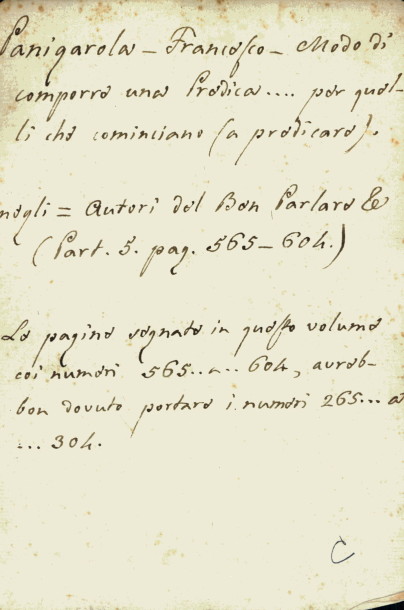 Panigarola - Francesco - Modo di
comporre una Predica.... per quel-
li che cominciano (a predicare).
negli = Autori del Ben Parlare &
(Part. 5. pag. 565-604.)
Le pagine segnate in questo volume
coi numeri 565..... 604, avreb-
bon dovuto portare i numeri 265... a
... 304.
C